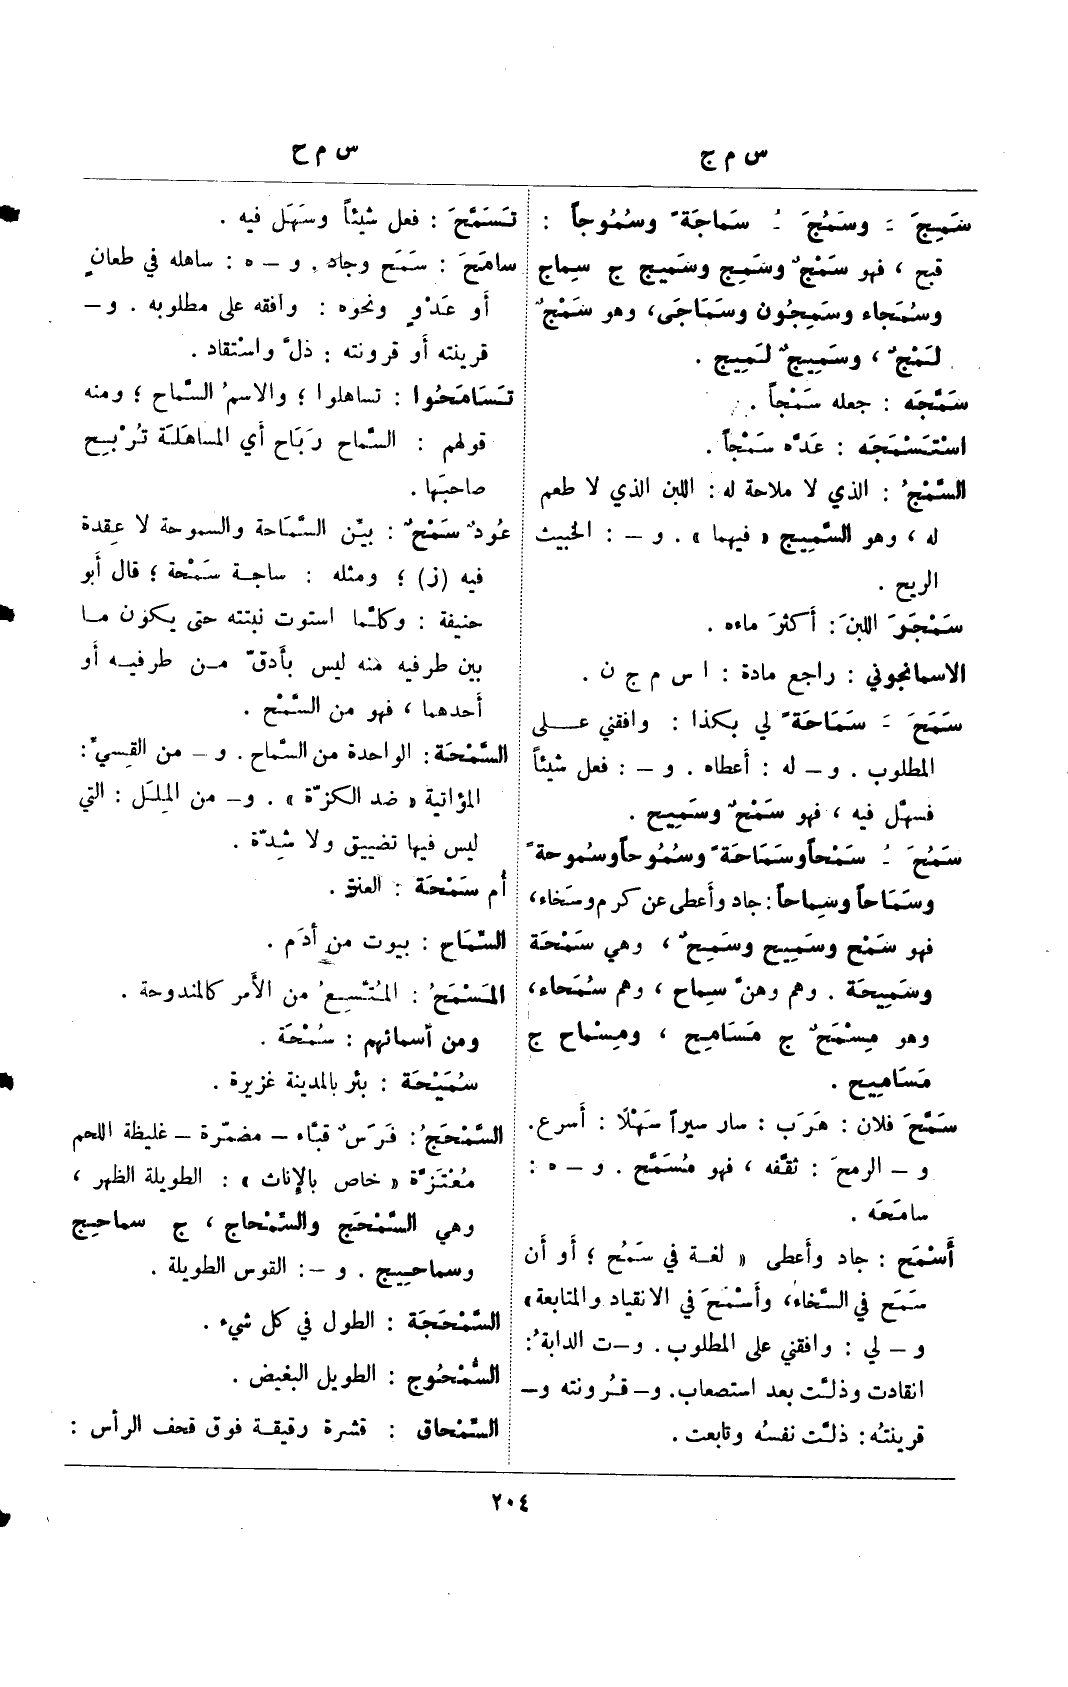 س م ج
س م ح
سَمِجَ ـَ وسَمُجَ ـُ سَماجَةً وسُمُوجاً :
قبح ، فهو سَمْجٌ وسَمِج وسَمِيج ج سِماج
وسُمَجاء وسَمِجُون وسَمَاجَى، وهو سَمْجٌ
لَمْجٌ ، وسَمِيجٌ لَمِيج .
سَمَّجَه : جعله سَمْجاً .
اسْتَسْمَجَه : عَدَّه سَمْجاً .
السَّمْجُ : الذي لا ملاحة له : اللبن الذي لا طعم
له ، وهو السَّمِيج « فيهما » . و – : الخبيث
الريح .
سَمْجَرَ اللبنَ : أكثرَ ماءه .
الاسمانجوني : راجع مادة : ا س م ج ن .
سَمَحَ ـَ سَمَاحَةً لي بكذا : وافقني عـــلى
المطلوب . و – له : أعطاه . و – : فعل شيئاً
فسهَّل فيه ، فهو سَمْحٌ وسَمِيح .
سَمُحَ ـُ سَمْحاً وسَمَاحَةً وسُمُوحاً وسُموحةً
وسَمَاحاً وسِماحاً : جاد وأعطى عن كرم وسَخاء،
فهو سَمْح وسَمِيح وسَمِحٌ ، وهي سَمْحَة
وسَمِيحَة . وهم وهنَّ سِماح ، وهم سُمَحاء،
وهو مِسْمَحٌ ج مَسَامِح ، ومِسْماح ج
مَسَامِيح .
سَمَّحَ فلان : هَرَب : سار سيراً سَهْلًا : أسرع.
و – الرمحَ : ثقَّفه ، فهو مُسَمَّح . و – ه :
سامَحَه .
أَسْمَح : جاد وأعطى « لغة في سَمُح ؛ أو أن
سَمَح في السَّخاء، وأَسْمَحَ في الانقياد والمتابعة»
و – لي : وافقني على المطلوب . و–ت الدابةُ :
انقادت وذلَّت بعد استصعاب. و– قَرُونته و–
قرينتُه : ذلَّت نفسُه وتابعت .
تَسَمَّحَ : فعل شيئاً وسَهَل فيه .
سامَحَ : سَمَح وجاد . و – ه : ساهله في طعانٍ
أو عَدْوٍ ونحوه : وافقه على مطلوبه . و–
قرينته أو قرونته : ذلَّ واسْتقاد .
تَسَامَحُوا : تساهلوا ؛ والاسمُ السَّماح ؛ ومنه
قولهم : السَّماح رَبَاح أي المساهَلَة تُرْبِح
صاحبَها .
عُودٌ سَمْحٌ : بيِّن السَّمَاحة والسموحة لا عقدة
فيه (ز) ؛ ومثله : ساجة سَمْحة ؛ قال أبو
حنيفة : وكلَّما استوت نبتته حتى يكون ما
بين طرفيه منه ليس بأدقّ من طرفيه أو
أحدهما ، فهو من السَّمْح .
السَّمْحَة : الواحدة من السَّماح . و – من القِسيّ :
المؤاتية « ضد الكزّة » . و– من المِلَل : التي
ليس فيها تضييق ولا شِدّة .
أم سَمْحَة : العنز .
السَّمَاح : بيوت من أدَم .
المَسْمَحُ : المُتَّسِعُ من الأمر كالمندوحة .
ومن أسمائهم : سُمْحَة .
سُمَيْحَة : بئر بالمدينة غزيرة .
السَّمْحَجُ : فَرَسٌ قبَّاء – مضمّرة – غليظة اللحم
مُعْتَزَّة « خاص بالإناث » : الطويلة الظهر ،
وهي السَّمْحَج والسِّمْحاج ، ج سماحِج
وسماحِيج . و –: القوس الطويلة .
السَّمْحَجَة : الطول في كل شيء .
السُّمْحُوج : الطويل البغيض .
السِّمْحاق : قشرة رقيقة فوق قحف الرأس :
٢٠٤